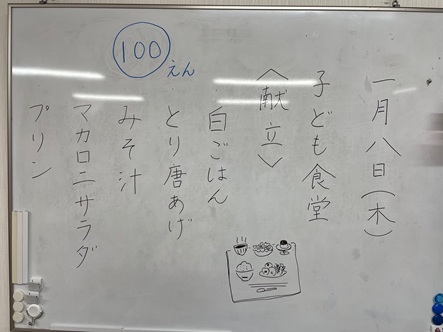 一月八日(木)
子ども食堂
〈献立〉
白ごはん
とり唐あげ
みそ汁
マカロニサラダ
プリン
100えん